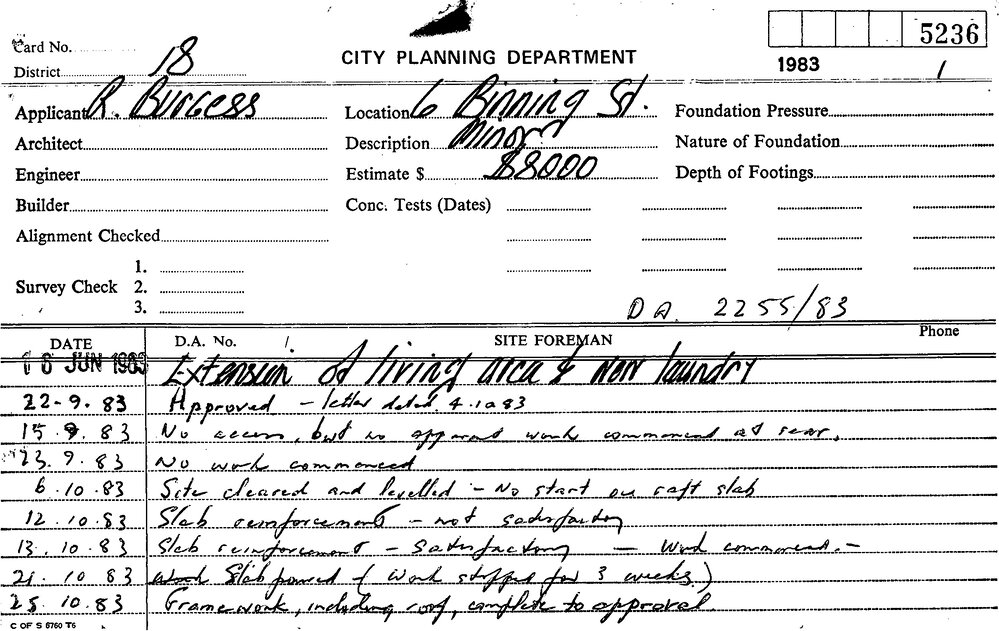 Card No.
5236
CITY PLANNING DEPARTMENT
1983
1
District 18
Applicant R. Burgess
Location 6 Binning St.
Foundation Pressure
Architect
Description Minor
Nature of Foundation
Engineer
Estimate $ $8000
Depth of Footings
Builder
Conc. Tests (Dates)
Alignment Checked
Survey Check
1.
2.
3.
DA. 2255/83
DATE D.A. No. SITE FOREMAN Phone
16 JUN 1983 Extension of living area & new laundry
22-9.83 Approved - letter dated 4.10 83
15.9.83 No access, but no apparent work commenced at rear.
23.9.83 No work commenced
6.10.83 Site cleared and levelled - No start on raft slab
12.10.83 Slab reinforcement - not satisfactory
13.10.83 Slab reinforcement - satisfactory - Work commenced.-
21.10 83 Slab poured (Work stopped for 3 weeks.)
25.10.83 Framework, including roof, complete to approval
C OF S 6760 T6